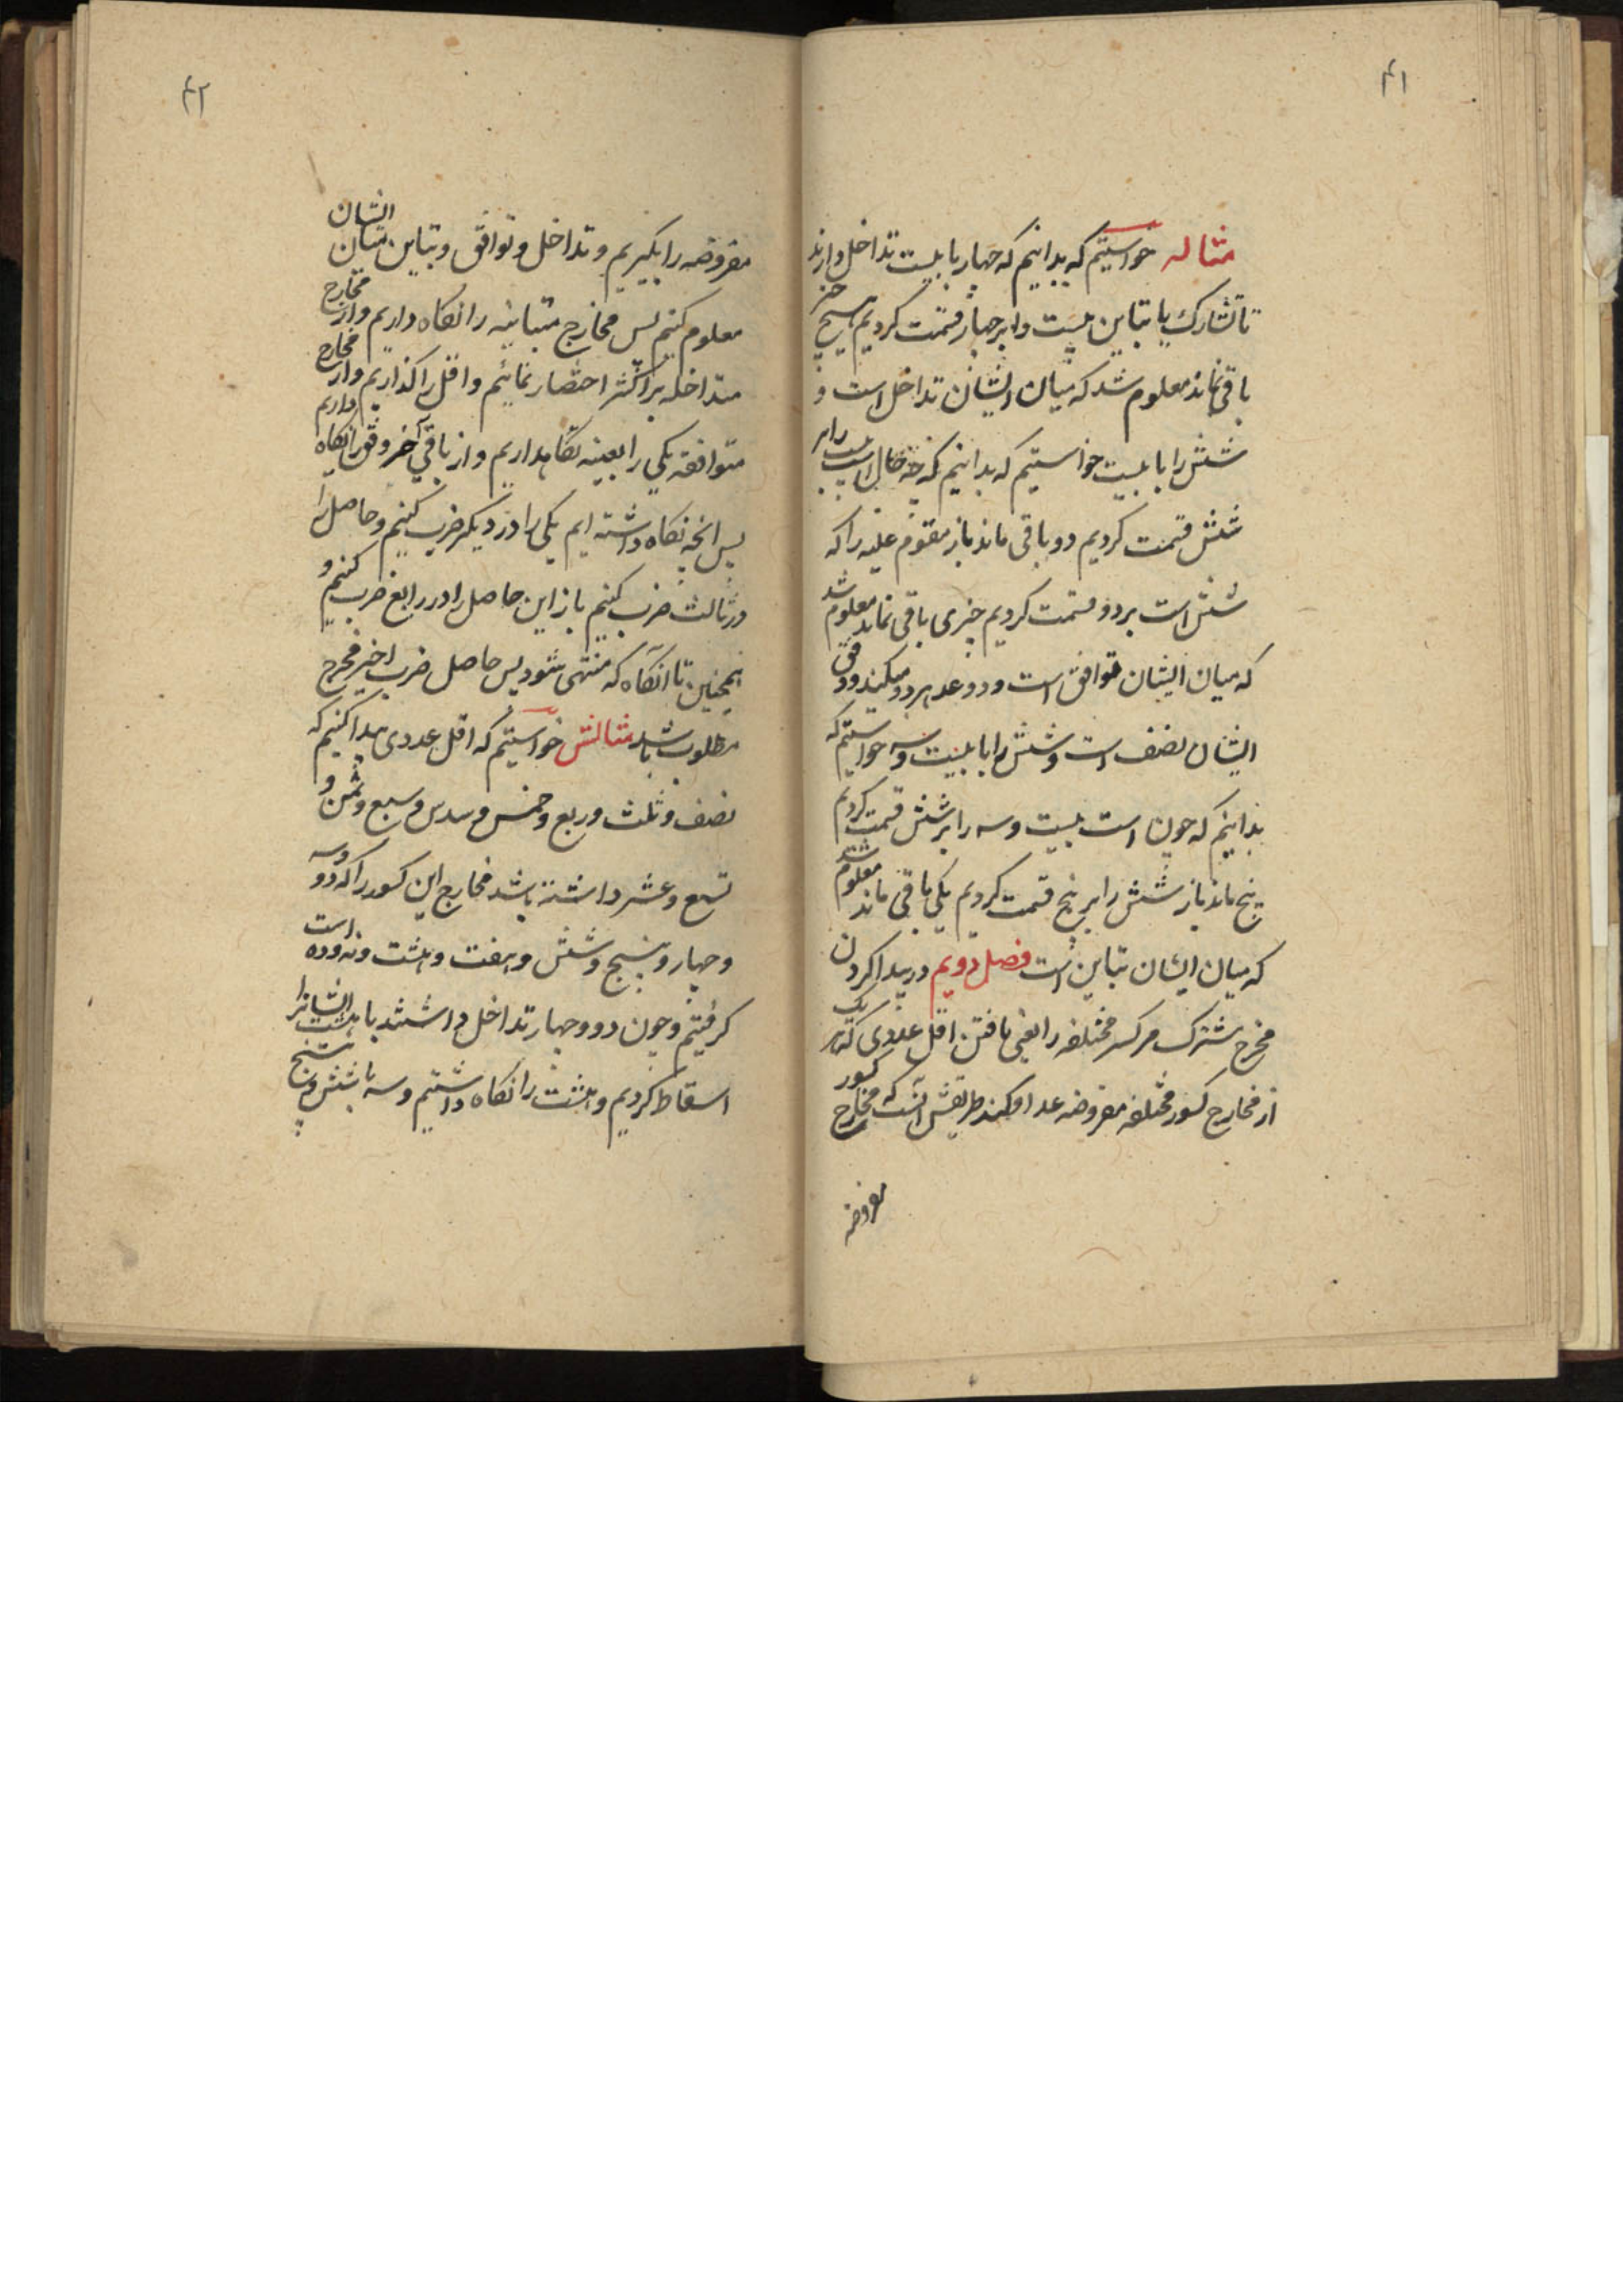 ۴۱
مثاله خواستیم که بدانیم که چهار با بیست تداخل دارند
یا تشارک یا تباین بیست را بر چهار قسمت کردیم هیچ چیز
باقی نماند معلوم شد که میان ایشان تداخل است و
شش را با بیست خواستیم که بدانیم که چه حال است بیست را بر
شش قسمت کردیم دو باقی ماند باز مقسوم علیه را که
شش است بر دو قسمت کردیم چیزی باقی نماند معلوم شد
که میان ایشان توافق است و دو عد هر دو میکند و وفق
ایشان نصف است و شش را با بیست و سه خواستیم که
بدانیم که چون است بیست و سه را بر شش قسمت کردیم
پنج ماند باز شش را بر پنج قسمت کردیم یکی باقی ماند معلوم شد
که میان ایشان تباین است فصل دویم در پیدا کردن
مخرج مشترک مر کسر مختلفه را یعنی یافتن اقل عددی که هر یک
از مخارج کسور مختلفه مفروضه عد او کند طریقش آنست که مخارج کسور
مفروضه
۴۲
مفروضه را بگیریم و تداخل و توافق و تباین میان ایشان
معلوم کنیم پس مخارج متباینه را نگاه داریم و از مخارج
متداخله بر اکثر اختصار نمائیم و اقل را گذاریم و از مخارج
متوافقه یکی را بعینه نگاهداریم و از باقی آخر وفق را نگاه داریم
پس آنچه نگاه داشته ایم یکی را در دیگر ضرب کنیم و حاصل را
در ثالث ضرب کنیم باز این حاصل را در رابع ضرب کنیم و
همچنین تا آنگاه که منتهی شود پس حاصل ضرب اخیر مخرج
مطلوب باشد مثالش خواستیم که اقل عددی پیدا کنیم که
نصف و ثلث و ربع و خمس و سدس و سبع و ثمن و
تسع و عشر داشته باشد مخارج این کسور را که دو و سه
و چهار و پنج و شش و هفت و هشت و نه و ده است
گرفتیم و چون دو و چهار تداخل داشتند با هشت ایشانرا
اسقاط کردیم و هشت را نگاه داشتیم و سه با شش و پنج